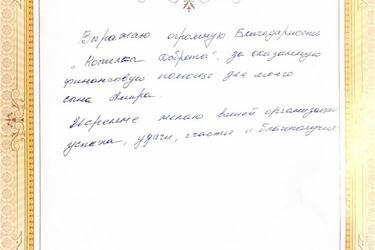 Выражаю огромную Благодарность
„Копилка Добра", за оказанную
финансовую помощь для моего
сына Амира.
Искренне желаю вашей организации
успеха, удачи, счастье и благополучия